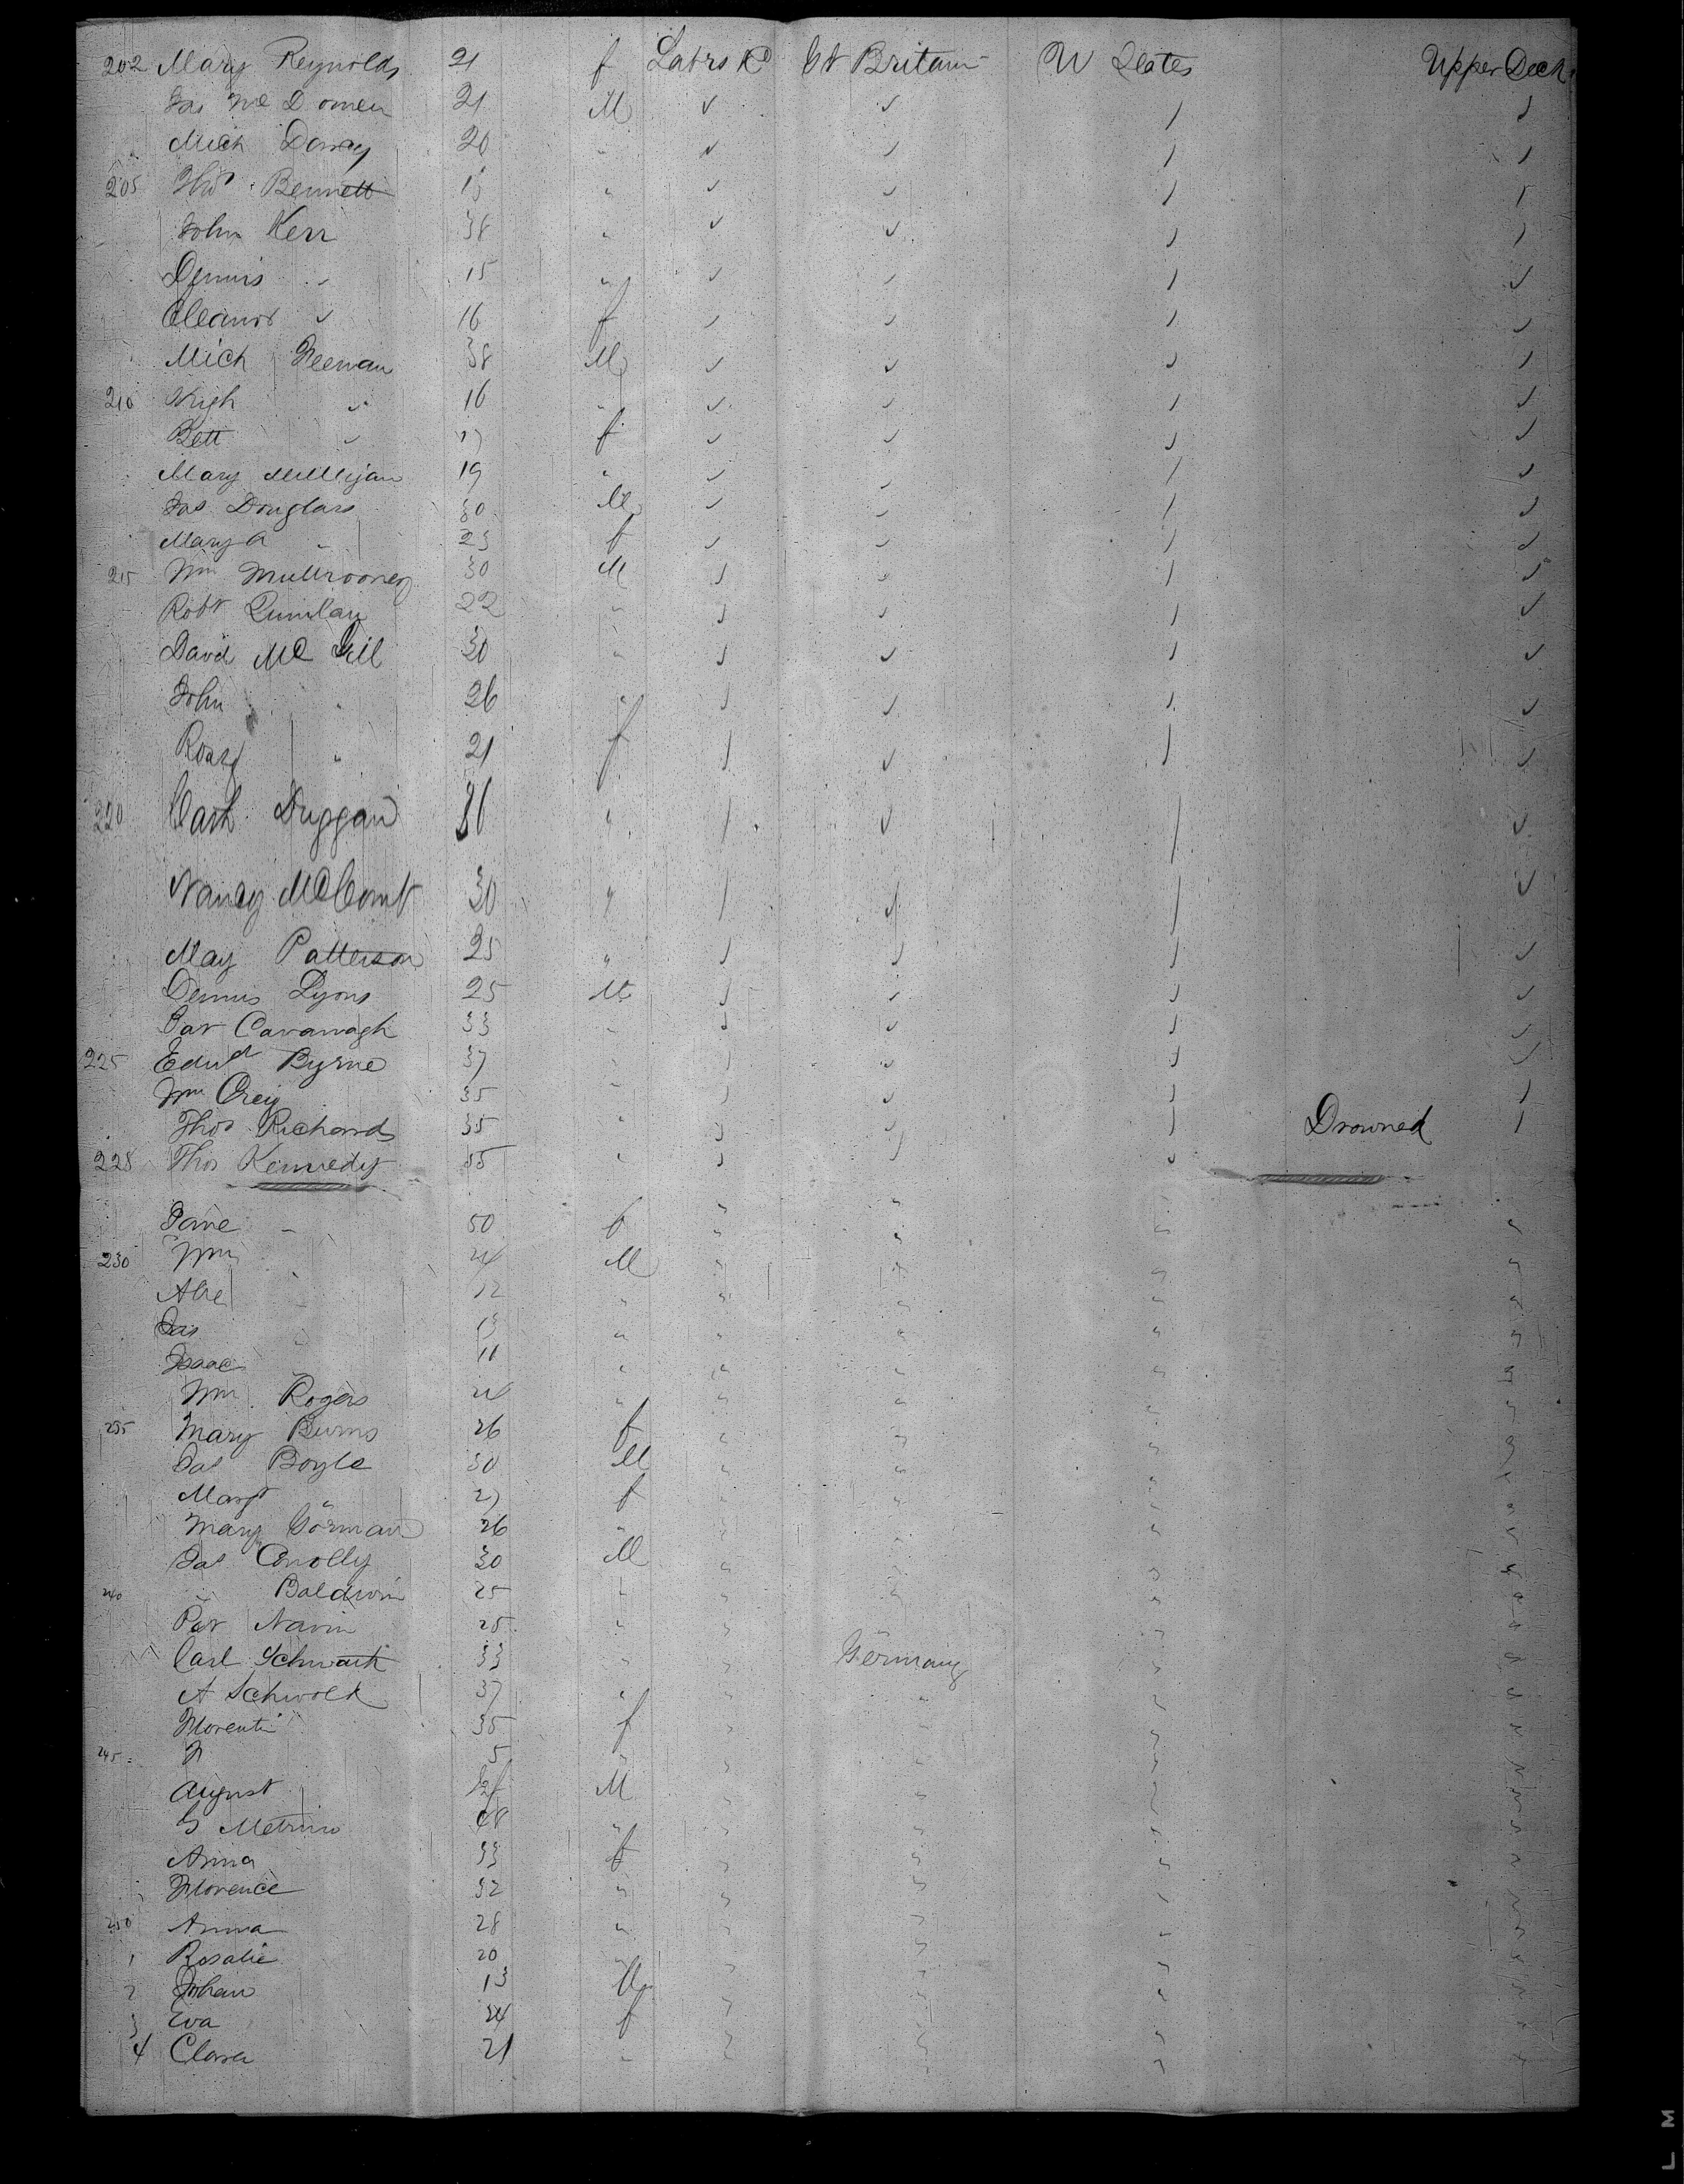 202 Mary Reynolds 21 f Labrs &c Gt Britain U States Upper Deck
Jas Mc D omen 21 M
Mich Darcy 20 "
205 Thos Bennett 15 "
John Kerr 38 "
Dennis " 15 "
Eleanor " 16 f
Mich Feewan 38 M
210 Hugh " 16 "
Bett " 17 f
Mary Millijan 19 "
Jas Douglass 30 M
Mary A " 23 f
215 Wm Mullrooney 30 M
Robt Quinlan 22 "
David Mc Gill 30 "
John " 26 "
Roasy " 21 f
220 Cath Duggan "
Nancy McComt 30 "
May Patterson 25 "
Dennis Lyons 25 M
Pat Cavanagh 33 "
225 Edwd Byrne 37 "
Wm Creig 35 "
Thos Richards 35 " Drowned
228 Thos Kennedy 55 "
Jane " 50 f
230 Wm 24 M
Alie 12 "
Jas 13 "
Isaac 11 "
Wm Rogers 24 "
235 Mary Burns 26 f
Jas Boyle 30 M
Margt " 27 f
Mary Gorman 26 "
Jas Conolly 30 M
240 " Baldwin 25 "
Pat Navin 25 "
Carl Schwark 33 " Germany
A Schwolk 37 "
Florenti 35 f
245 F 5 "
August M
G Metrino 48 "
Anna 33 f
Florence 32 "
250 Anna 28 "
1 Rosalie 20 "
2 Johan 13 M
3 Eva 24 f
4 Clara 21 "